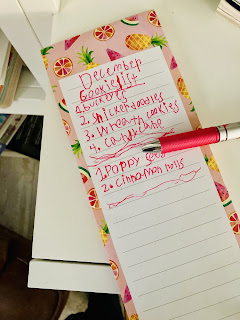 December
Cookielist
1. Buckeyes
2. Snickerdoodles
3. Wreath cookies
4.
1. Poppy seed
2. cinnamon rolls